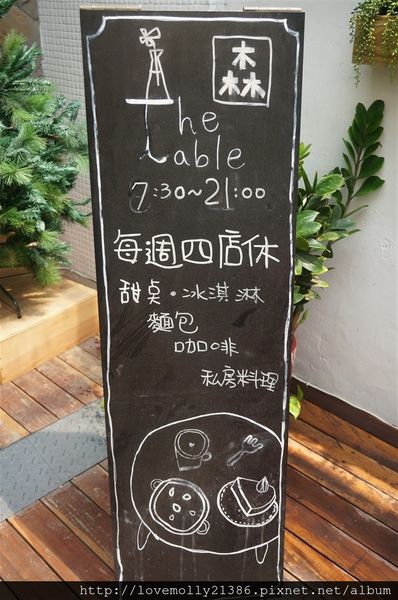 森
The
Table
7:30~21:00
每週四店休
甜桌·冰淇淋
麵包
咖啡
私房料理
http://lovemolly21386.pixnet.net/album